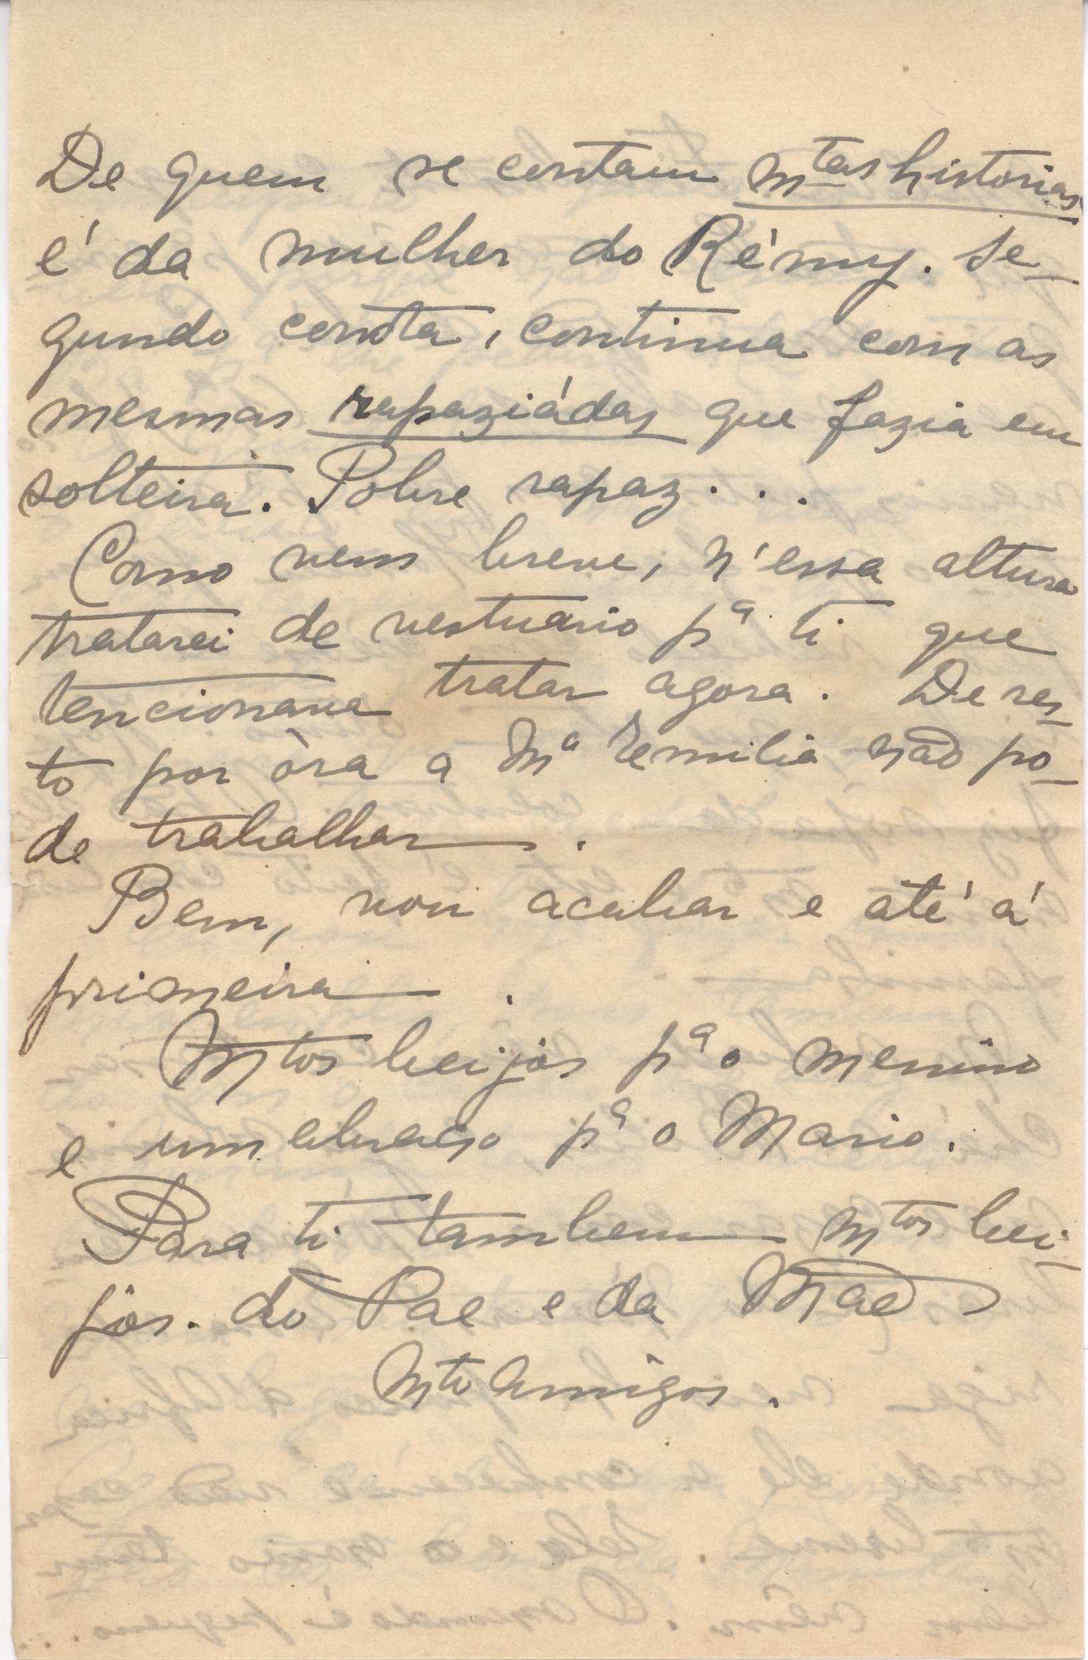 De quem se contam mtas historias
é da mulher do Rémy. Se-
gundo consta, continua com as
mesmas rapaziádas que fazia em
solteira. Pobre rapaz...
Como vens breve, n'essa altura
tratarei de vestuario pª ti que
tencionava tratar agora. De res-
to por òra a Mª Emilia não po-
de trabalhar.
Bem, vou acabar e até á
primeira.
Mtos beijos pª o menino
e um abraço pª o Mario.
Para ti tambem mtos bei-
jos. do Pae e da Mãe
Mto Amigos.